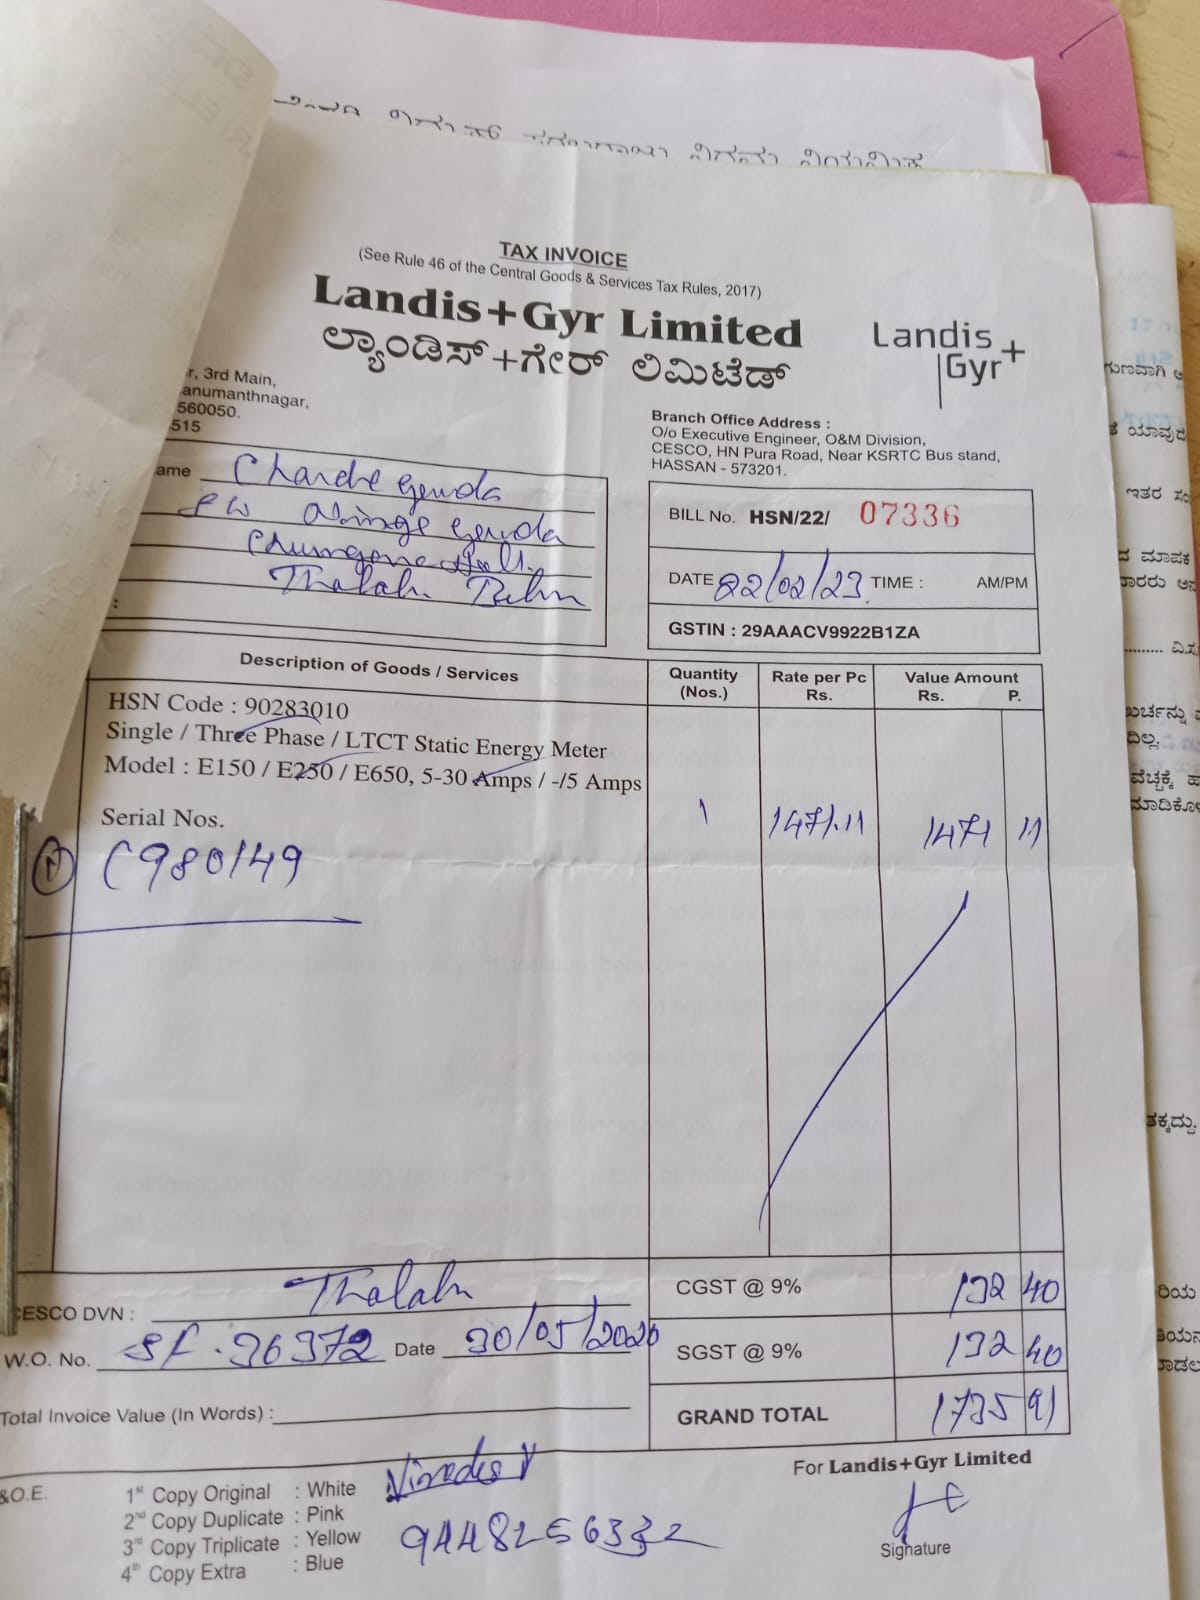 TAX INVOICE
(See Rule 46 of the Central Goods & Services Tax Rules, 2017)
Landis+Gyr Limited
ಲ್ಯಾಂಡಿಸ್+ಗೇರ್ ಲಿಮಿಟೆಡ್
Landis
Gyr+
r, 3rd Main,
anumanthnagar,
560050.
515
Branch Office Address :
O/o Executive Engineer, O&M Division,
CESCO, HN Pura Road, Near KSRTC Bus stand,
HASSAN - 573201.
ame Chandre gowda
Ninge gowda
Thalalu
BILL No. HSN/22/ 07336
DATE 22/02/23 TIME : AM/PM
GSTIN : 29AAACV9922B1ZA
Description of Goods / Services Quantity (Nos.) Rate per Pc Rs. Value Amount Rs. P.
HSN Code : 90283010
Single / Three Phase / LTCT Static Energy Meter
Model : E150 / E250 / E650, 5-30 Amps / -/5 Amps
1 1471.11 1471 11
Serial Nos.
1 C980149
CESCO DVN : Thalalu
CGST @ 9% 132 40
W.O. No. 36372 Date 30/05/2020
SGST @ 9% 132 40
Total Invoice Value (In Words) :
GRAND TOTAL 1735 91
For Landis+Gyr Limited
&O.E.
1st Copy Original : White
2nd Copy Duplicate : Pink
3rd Copy Triplicate : Yellow
4th Copy Extra : Blue
Signature
ಗುಣವಾಗಿ
ಯಾವುದ
ಇತರ ಸಂ
ದ ಮಾಪಕ
ವಿ.ಸ
ಖರ್ಚನ್ನು
ದಿಲ್ಲ.
ವೆಚ್ಚಕ್ಕೆ
ಮಾಡಿಕೊ
ತಕ್ಕದ್ದು.